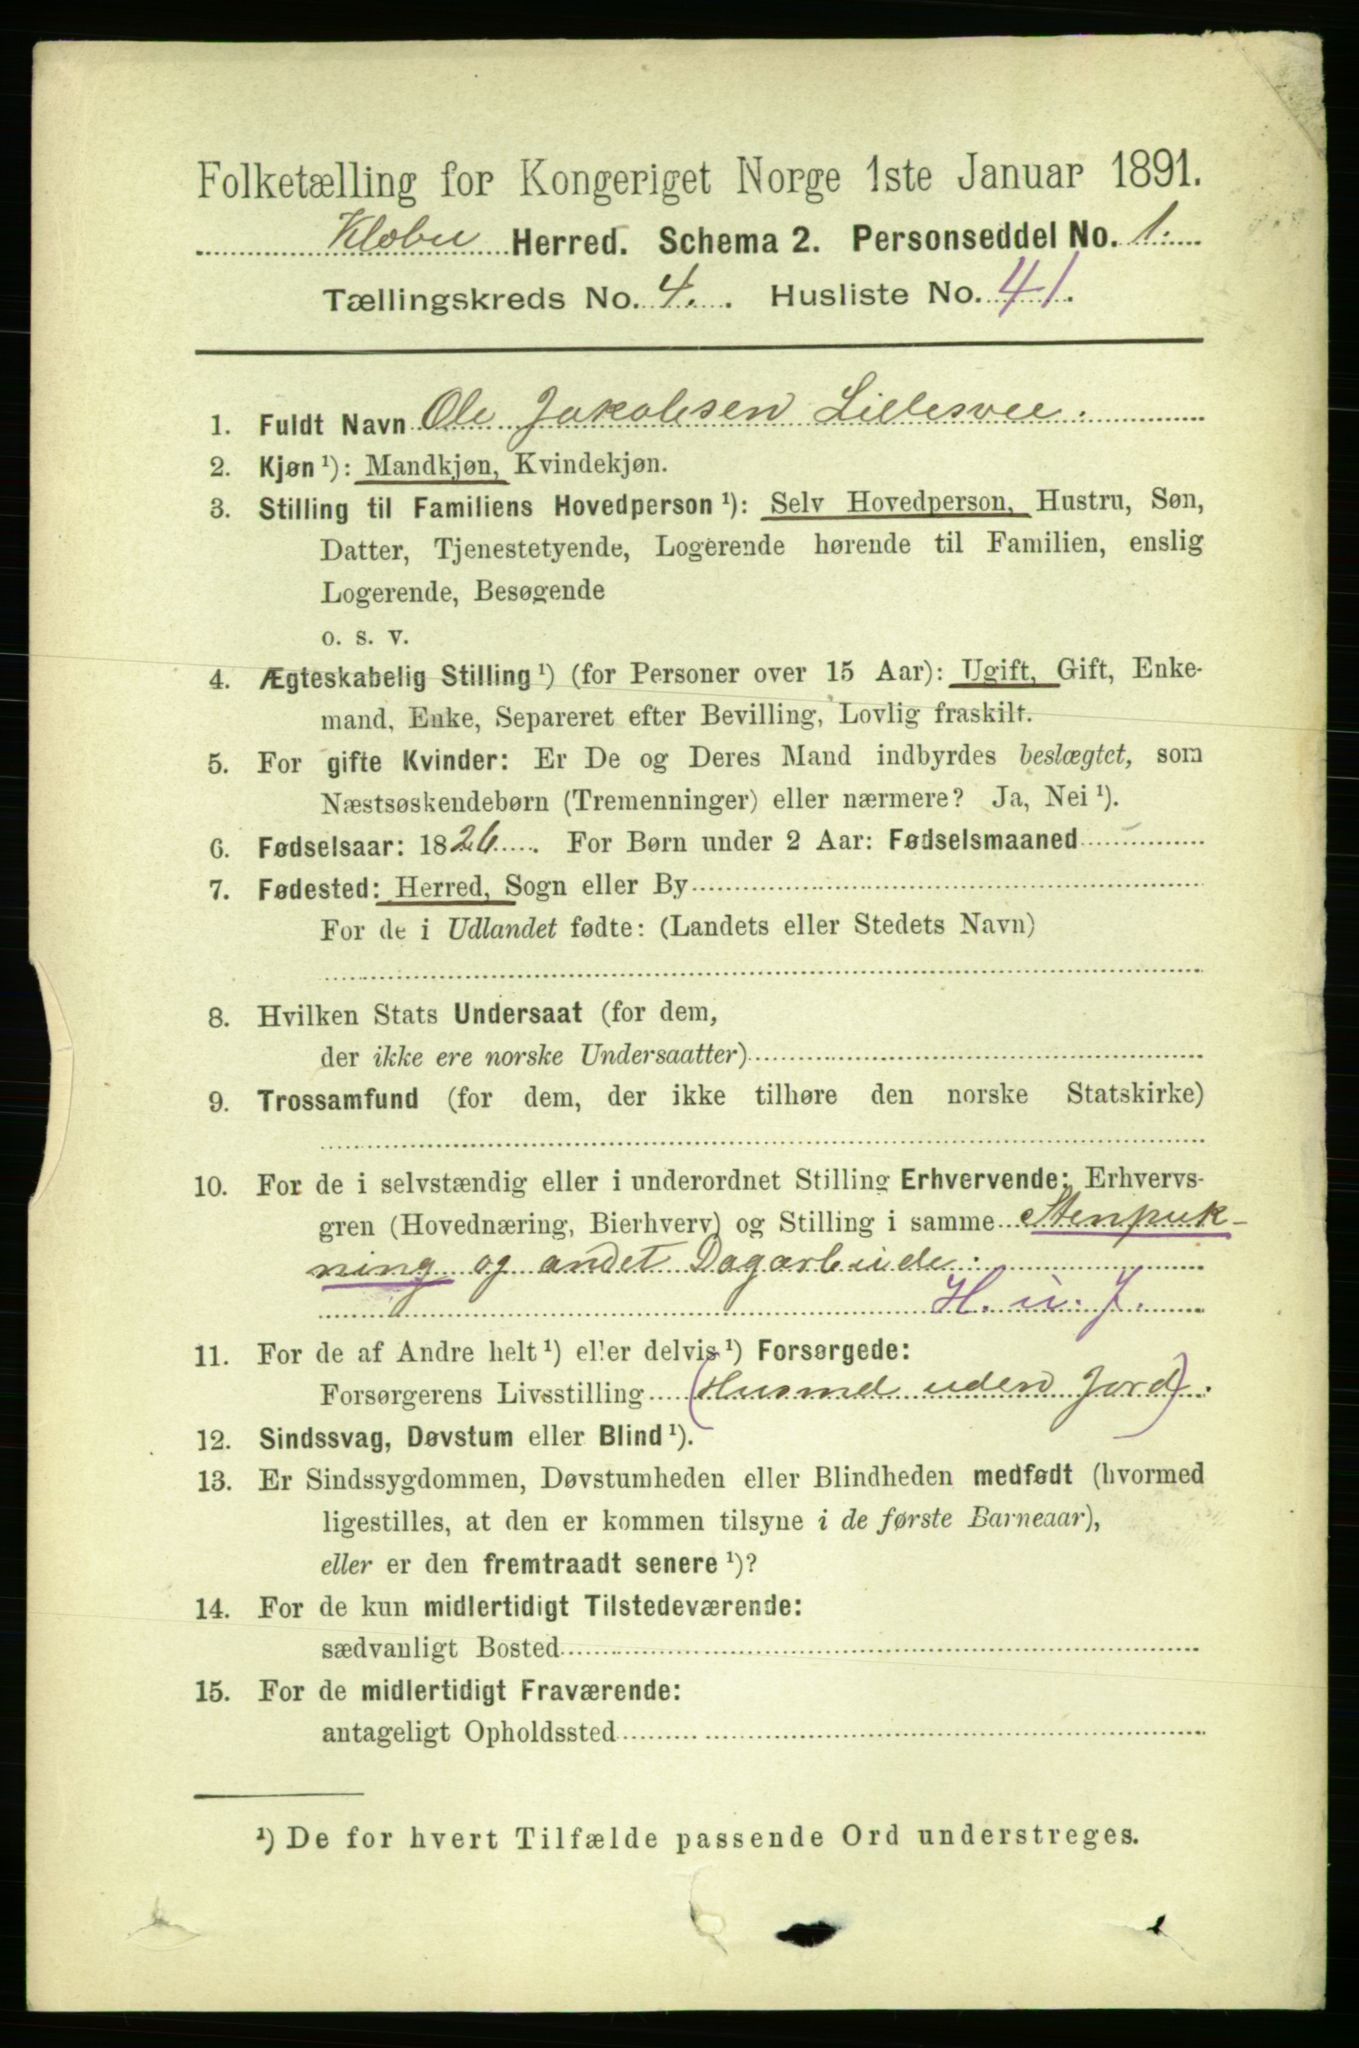 Folketælling for Kongeriget Norge 1ste Januar 1891.
Klæbu Herred. Schema 2. Personseddel No. 1.
Tællingskreds No. 4. Husliste No. 41.
1. Fuldt Navn Ole Jakobsen Lillesvee.
2. Kjøn ¹): Mandkjøn, Kvindekjøn.
3. Stilling til Familiens Hovedperson ¹): Selv Hovedperson, Hustru, Søn,
Datter, Tjenestetyende, Logerende hørende til Familien, enslig
Logerende, Besøgende
o. s. v.
4. Ægteskabelig Stilling ¹) (for Personer over 15 Aar): Ugift, Gift, Enke-
mand, Enke, Separeret efter Bevilling, Lovlig fraskilt.
5. For gifte Kvinder: Er De og Deres Mand indbyrdes beslægtet, som
Næstsøskendebørn (Tremenninger) eller nærmere? Ja, Nei ¹).
6. Fødselsaar: 1826. For Børn under 2 Aar: Fødselsmaaned
7. Fødested: Herred, Sogn eller By
For de i Udlandet fødte: (Landets eller Stedets Navn)
8. Hvilken Stats Undersaat (for dem,
der ikke ere norske Undersaatter)
9. Trossamfund (for dem, der ikke tilhøre den norske Statskirke)
10. For de i selvstændig eller i underordnet Stilling Erhvervende: Erhvervs-
gren (Hovednæring, Bierhverv) og Stilling i samme Stenpuk-
ning og andet Dagarbeide.
H. u. J.
11. For de af Andre helt ¹) eller delvis ¹) Forsørgede:
Forsørgerens Livsstilling (Husmd uden Jord).
12. Sindssvag, Døvstum eller Blind ¹).
13. Er Sindssygdommen, Døvstumheden eller Blindheden medfødt (hvormed
ligestilles, at den er kommen tilsyne i de første Barneaar),
eller er den fremtraadt senere ¹)?
14. For de kun midlertidigt Tilstedeværende:
sædvanligt Bosted
15. For de midlertidigt Fraværende:
antageligt Opholdssted
¹) De for hvert Tilfælde passende Ord understreges.